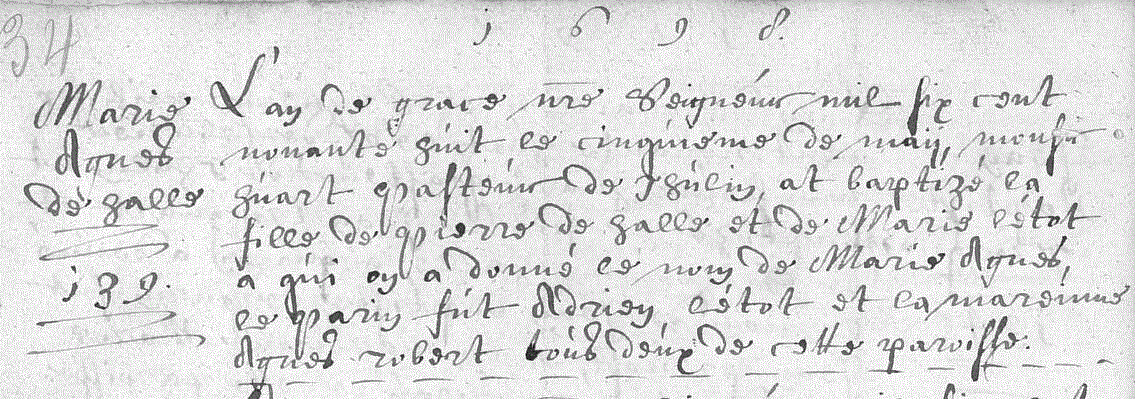 34
1698.
Marie
Agnes
de halle
139.
L'an de grace nre Seigneur mil six cent
nonante huit le cinquieme de maij, monsr
huart pasteur de Thulin, at baptizé la
fille de pierre de halle et de Marie létot
a qui on a donné le nom de Marie Agnes,
le parin fut Adrien létot et la mareinne
Agnes robert tous deux de cette paroisse.